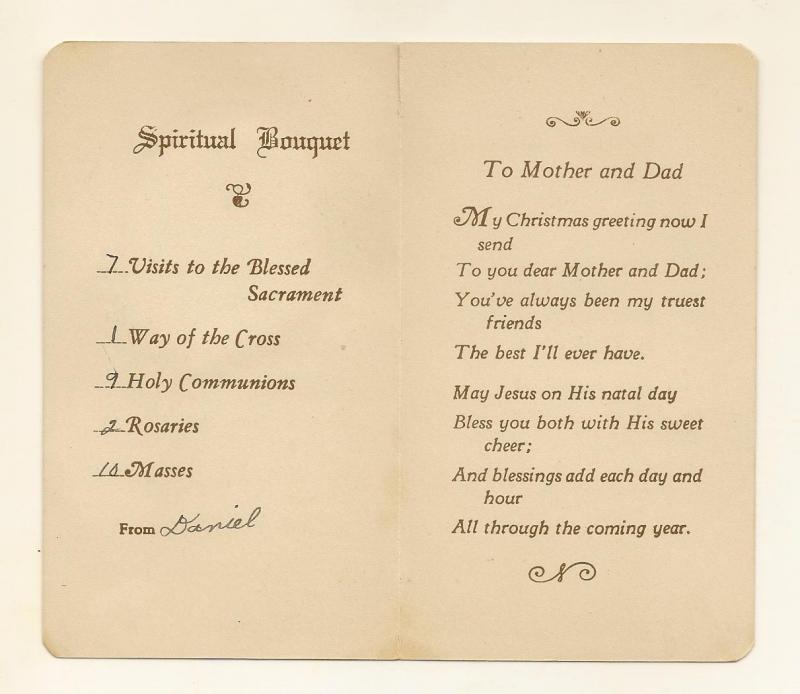 Spiritual Bouquet
7 Visits to the Blessed
Sacrament
1 Way of the Cross
9 Holy Communions
2 Rosaries
10 Masses
From Daniel
To Mother and Dad
My Christmas greeting now I
send
To you dear Mother and Dad;
You've always been my truest
friends
The best I'll ever have.
May Jesus on His natal day
Bless you both with His sweet
cheer;
And blessings add each day and
hour
All through the coming year.